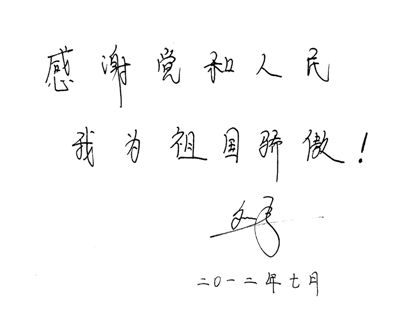 感谢党和人民
我为祖国骄傲！
二〇一二年七月